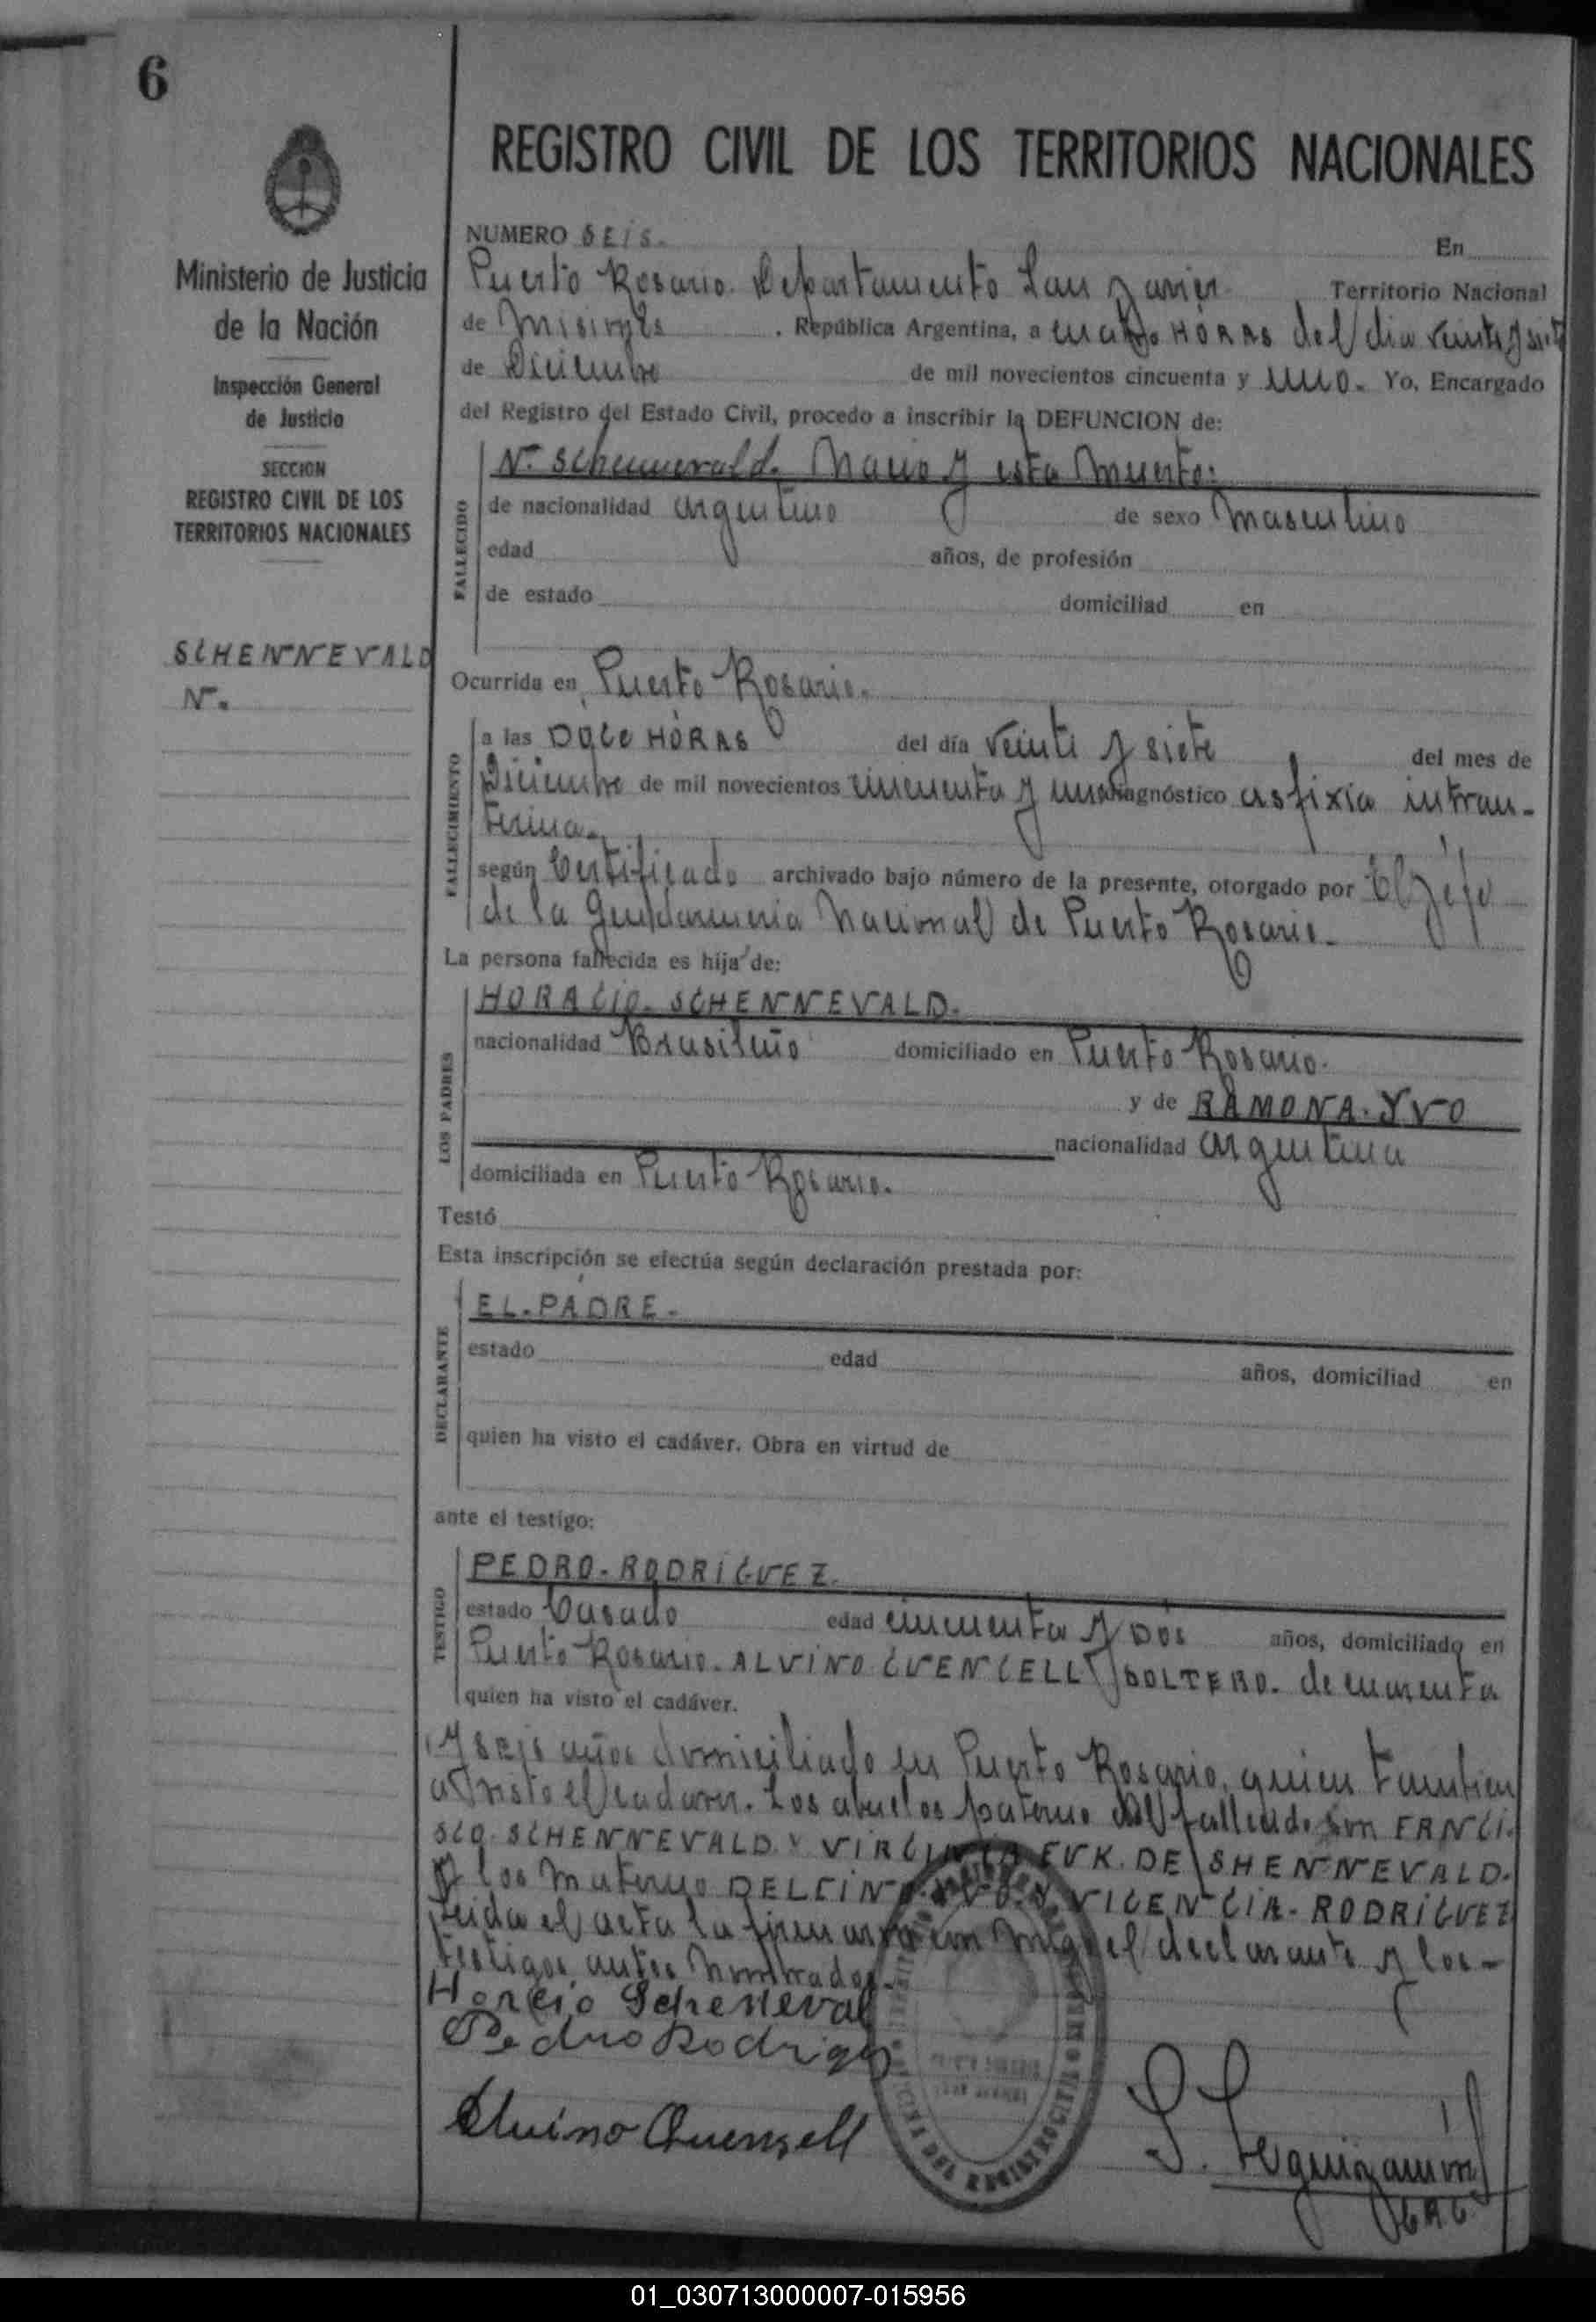 6
REGISTRO CIVIL DE LOS TERRITORIOS NACIONALES
Ministerio de Justicia
de la Nación
Inspección General
de Justicia
SECCION
REGISTRO CIVIL DE LOS
TERRITORIOS NACIONALES
SCHENNEVALD
N.
NUMERO SEIS. En
Puerto Rosario. Departamento San Javier Territorio Nacional
de Misiones . República Argentina, a cuatro HORAS del dia veinte y siete
de Diciembre de mil novecientos cincuenta y uno. Yo, Encargado
del Registro del Estado Civil, procedo a inscribir la DEFUNCION de:
FALLECIDO
N. Schennevald. Nacio y esta Muerto.
de nacionalidad argentino de sexo Masculino
edad años, de profesión
de estado domiciliad en
Ocurrida en Puerto Rosario.
FALLECIMIENTO
a las DOCE HORAS del día veinte y siete del mes de
Diciembre de mil novecientos cincuenta y uno diagnóstico asfixia intrau-
terina.
según Certificado archivado bajo número de la presente, otorgado por El Jefe
de la Gendarmeria Nacional de Puerto Rosario.
La persona fallecida es hija de:
LOS PADRES
HORACIO. SCHENNEVALD.
nacionalidad Brasileño domiciliado en Puerto Rosario.
y de RAMONA. YVO
nacionalidad argentina
domiciliada en Puerto Rosario.
Testó
Esta inscripción se efectúa según declaración prestada por:
DECLARANTE
EL. PADRE.
estado edad años, domiciliad en
quien ha visto el cadáver. Obra en virtud de
ante el testigo:
TESTIGO
PEDRO. RODRIGUEZ.
estado Casado edad cincuenta y DOS años, domiciliado en
Puerto Rosario. ALVINO GUENCELL y SOLTERO. de cuarenta
quien ha visto el cadáver.
y seis años domiciliado en Puerto Rosario, quien tambien
a visto el cadaver. Los abuelos paterno del fallecido son FRNCI.
SCO. SCHENNEVALD Y VIRGINIA FUK. DE SHENNEVALD.
y los Materno DELFINO YVO. Y VICENCIA. RODRIGUEZ
leida el acta la firmaron con migo el declarante y los-
testigos antes nombrados.
Horacio Scheneval
Pedro Rodrigez
Alvino Guensell
OFICINA DEL REGISTRO CIVIL
S. Leguizamón
01_030713000007-015956